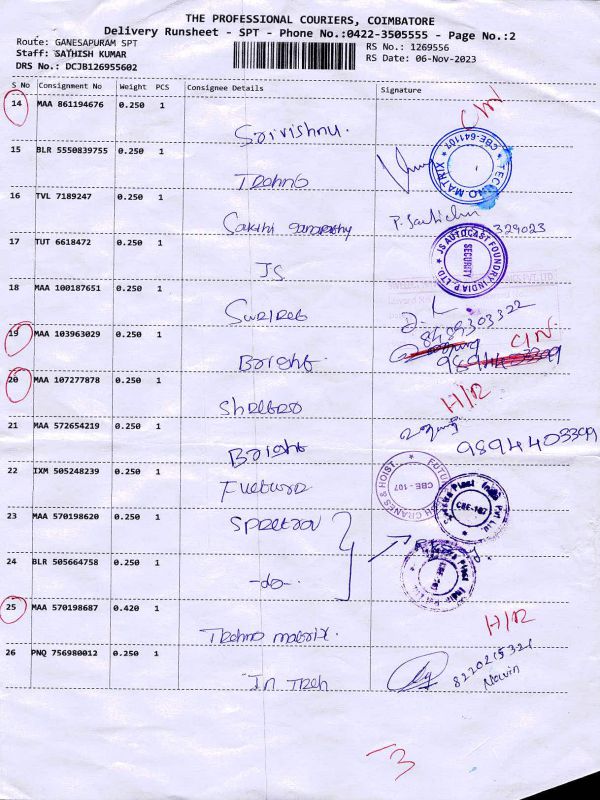 THE PROFESSIONAL COURIERS, COIMBATORE
Delivery Runsheet - SPT - Phone No.:0422-3505555 - Page No.:2
Route: GANESAPURAM SPT
Staff: SATHISH KUMAR
DRS No.: DCJB126955602
RS No.: 1269556
RS Date: 06-Nov-2023
S No Consignment No Weight PCS Consignee Details Signature
14 MAA 861194676 0.250 1 Srivishnu. C/N
15 BLR 5550839755 0.250 1 Techno
TECHNO MATRIX * CBE-641107 *
16 TVL 7189247 0.250 1 Sakthi Ganapathy
329023
17 TUT 6618472 0.250 1 JS
JS AUTOCAST FOUNDRY INDIA P. LTD. * SECURITY
18 MAA 100187651 0.250 1
8489303322
19 MAA 103963029 0.250 1 Bright. C/N
9894403399
20 MAA 107277878 0.250 1 H/R
21 MAA 572654219 0.250 1 Bright
9894403399
22 IXM 505248239 0.250 1
CRANES & HOIST. CBE - 107
23 MAA 570198620 0.250 1
Plast India Pvt Ltd. CBE-107
24 BLR 505664758 0.250 1 -do-.
25 MAA 570198687 0.420 1 Techno matrix. H/R
26 PNQ 756980012 0.250 1 In Tech
8220215321
Nawin
3